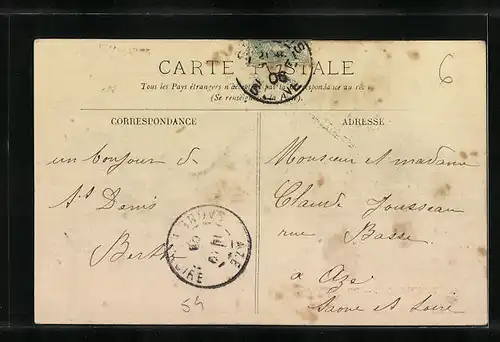 CARTE POSTALE
Tous les Pays étrangers n'acceptent pas la correspondance au recto
(Se renseigner à la Poste)
6
06
CORRESPONDANCE
ADRESSE
un bonjour de
St Denis
Berthe
Monsieur et madame
Claude Jousseau
rue Basse
a Azé
Saone et Loire
AZÉ
LOIRE
54